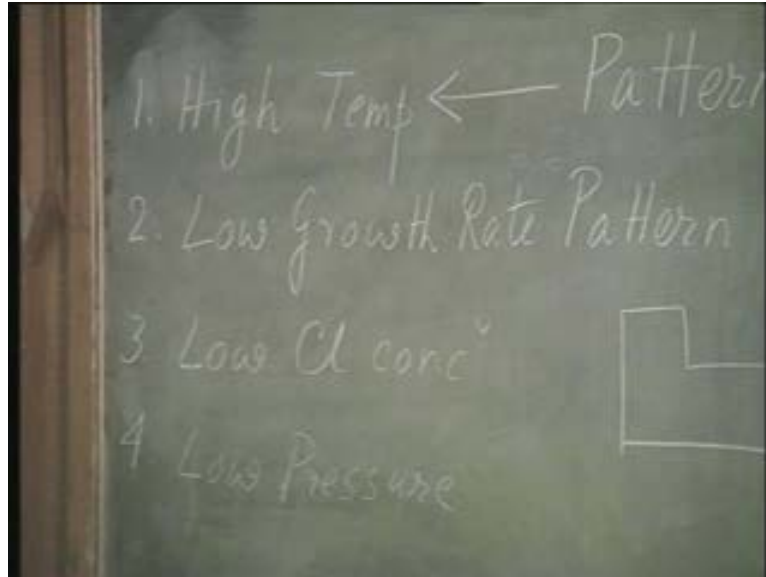 1. High Temp ← Pattern
2. Low Growth Rate Pattern
3 Low Cl conc
4 Low Pressure